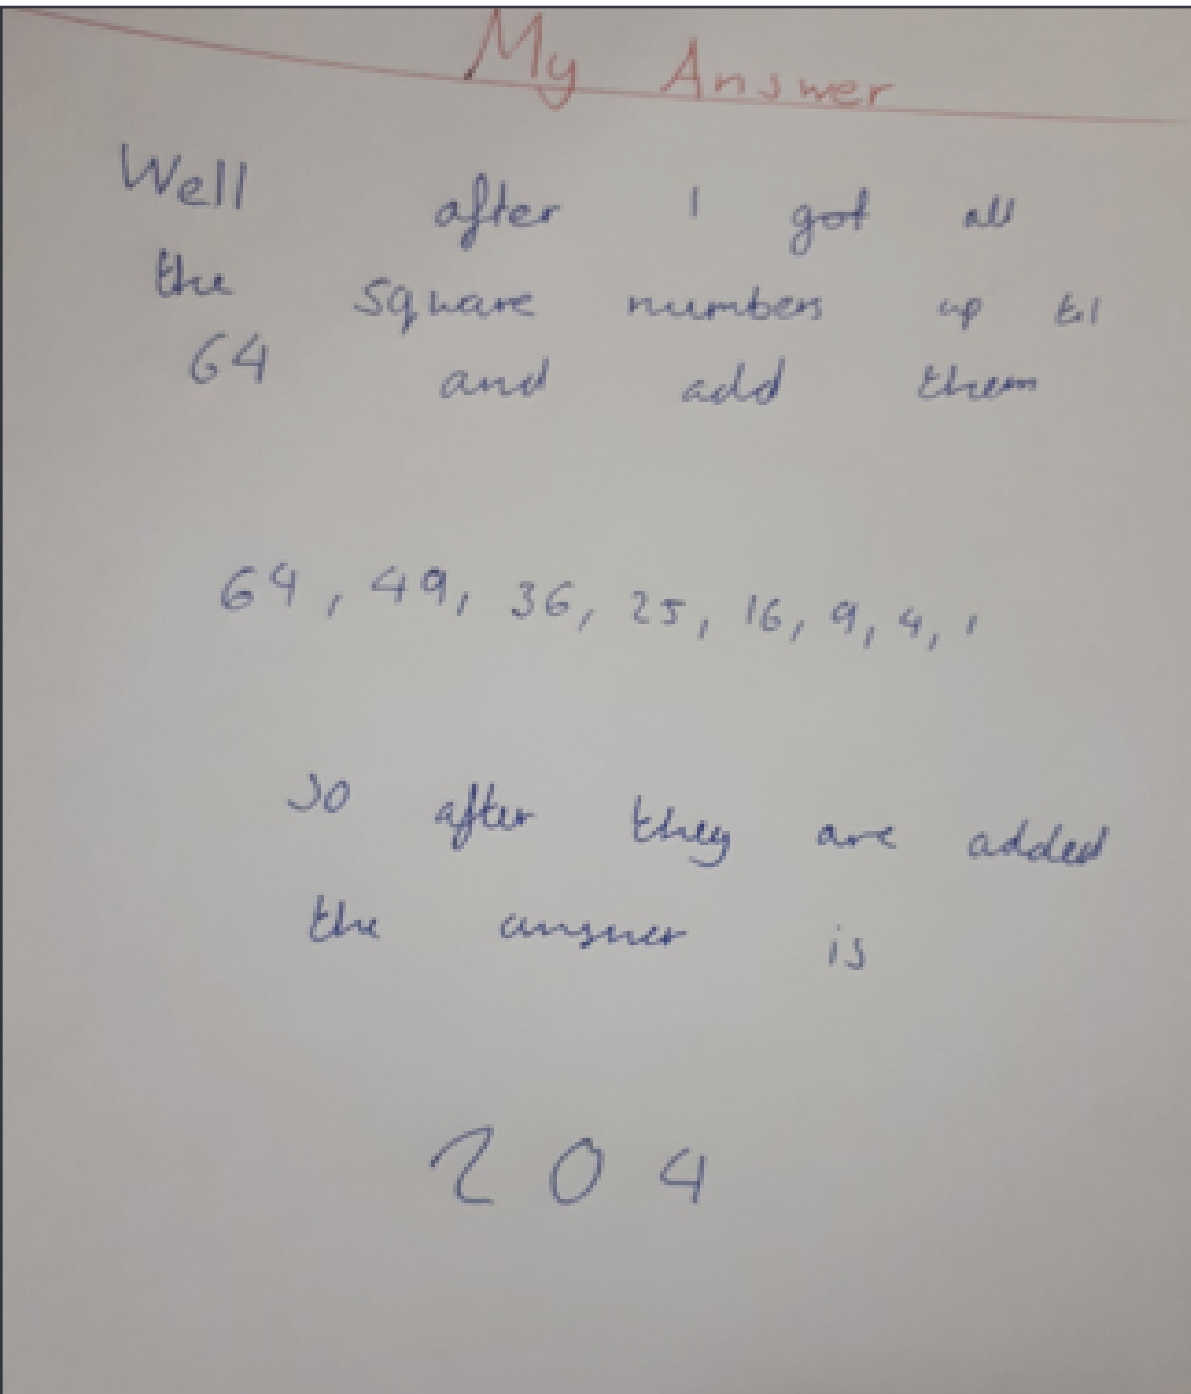 My Answer
Well after I got all
the square numbers up til
64 and add them
64, 49, 36, 25, 16, 9, 4, 1
So after they are added
the answer is
204